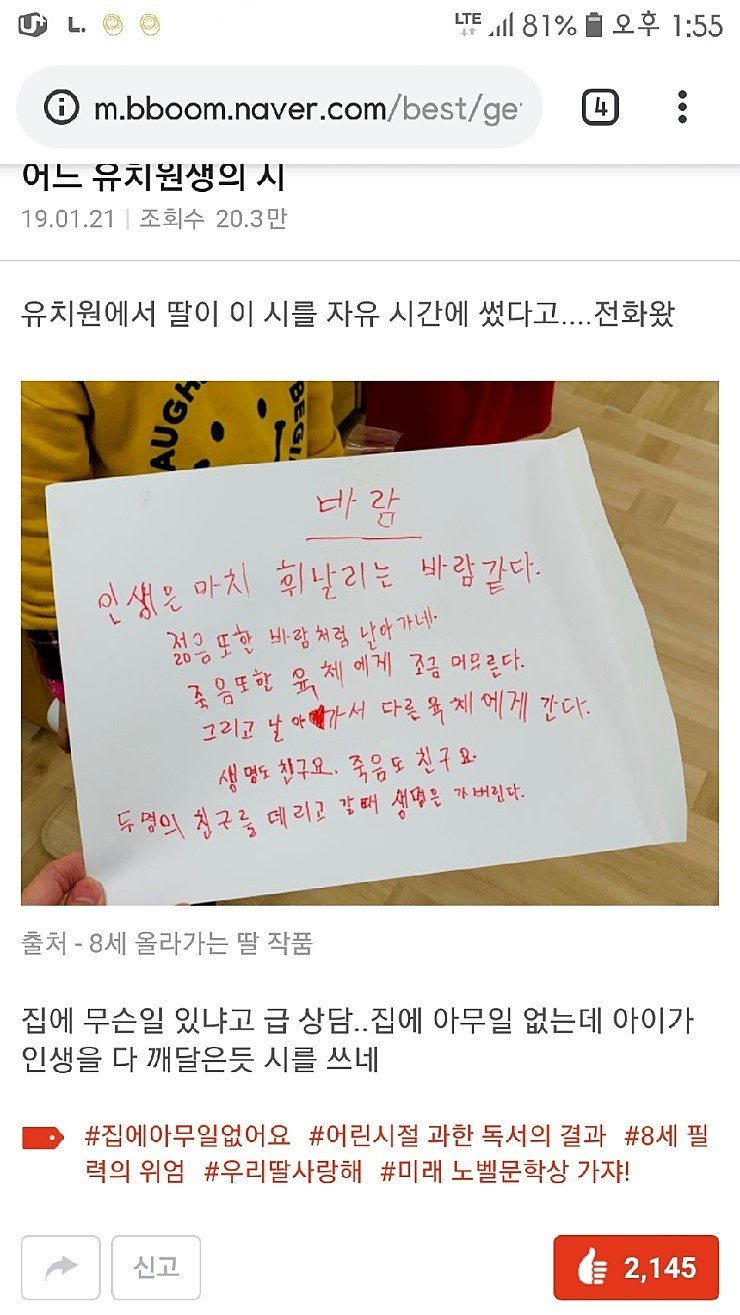 L.
LTE 81% 오후 1:55
m.bboom.naver.com/best/ge
4
어느 유치원생의 시
19.01.21 | 조회수 20.3만
유치원에서 딸이 이 시를 자유 시간에 썼다고....전화왔
AUGH
BEGI
바람
인생은 마치 휘날리는 바람같다.
젊음또한 바람처럼 날아가네.
죽음또한 육체에게 조금 머무른다.
그리고 날아가서 다른육체에게 간다.
생명도 친구요. 죽음도 친구요.
두명의 친구를 데리고 갈때 생명은 가버린다.
출처 - 8세 올라가는 딸 작품
집에 무슨일 있냐고 급 상담..집에 아무일 없는데 아이가
인생을 다 깨달은듯 시를 쓰네
#집에아무일없어요 #어린시절 과한 독서의 결과 #8세 필
력의 위엄 #우리딸사랑해 #미래 노벨문학상 가쟈!
신고
2,145